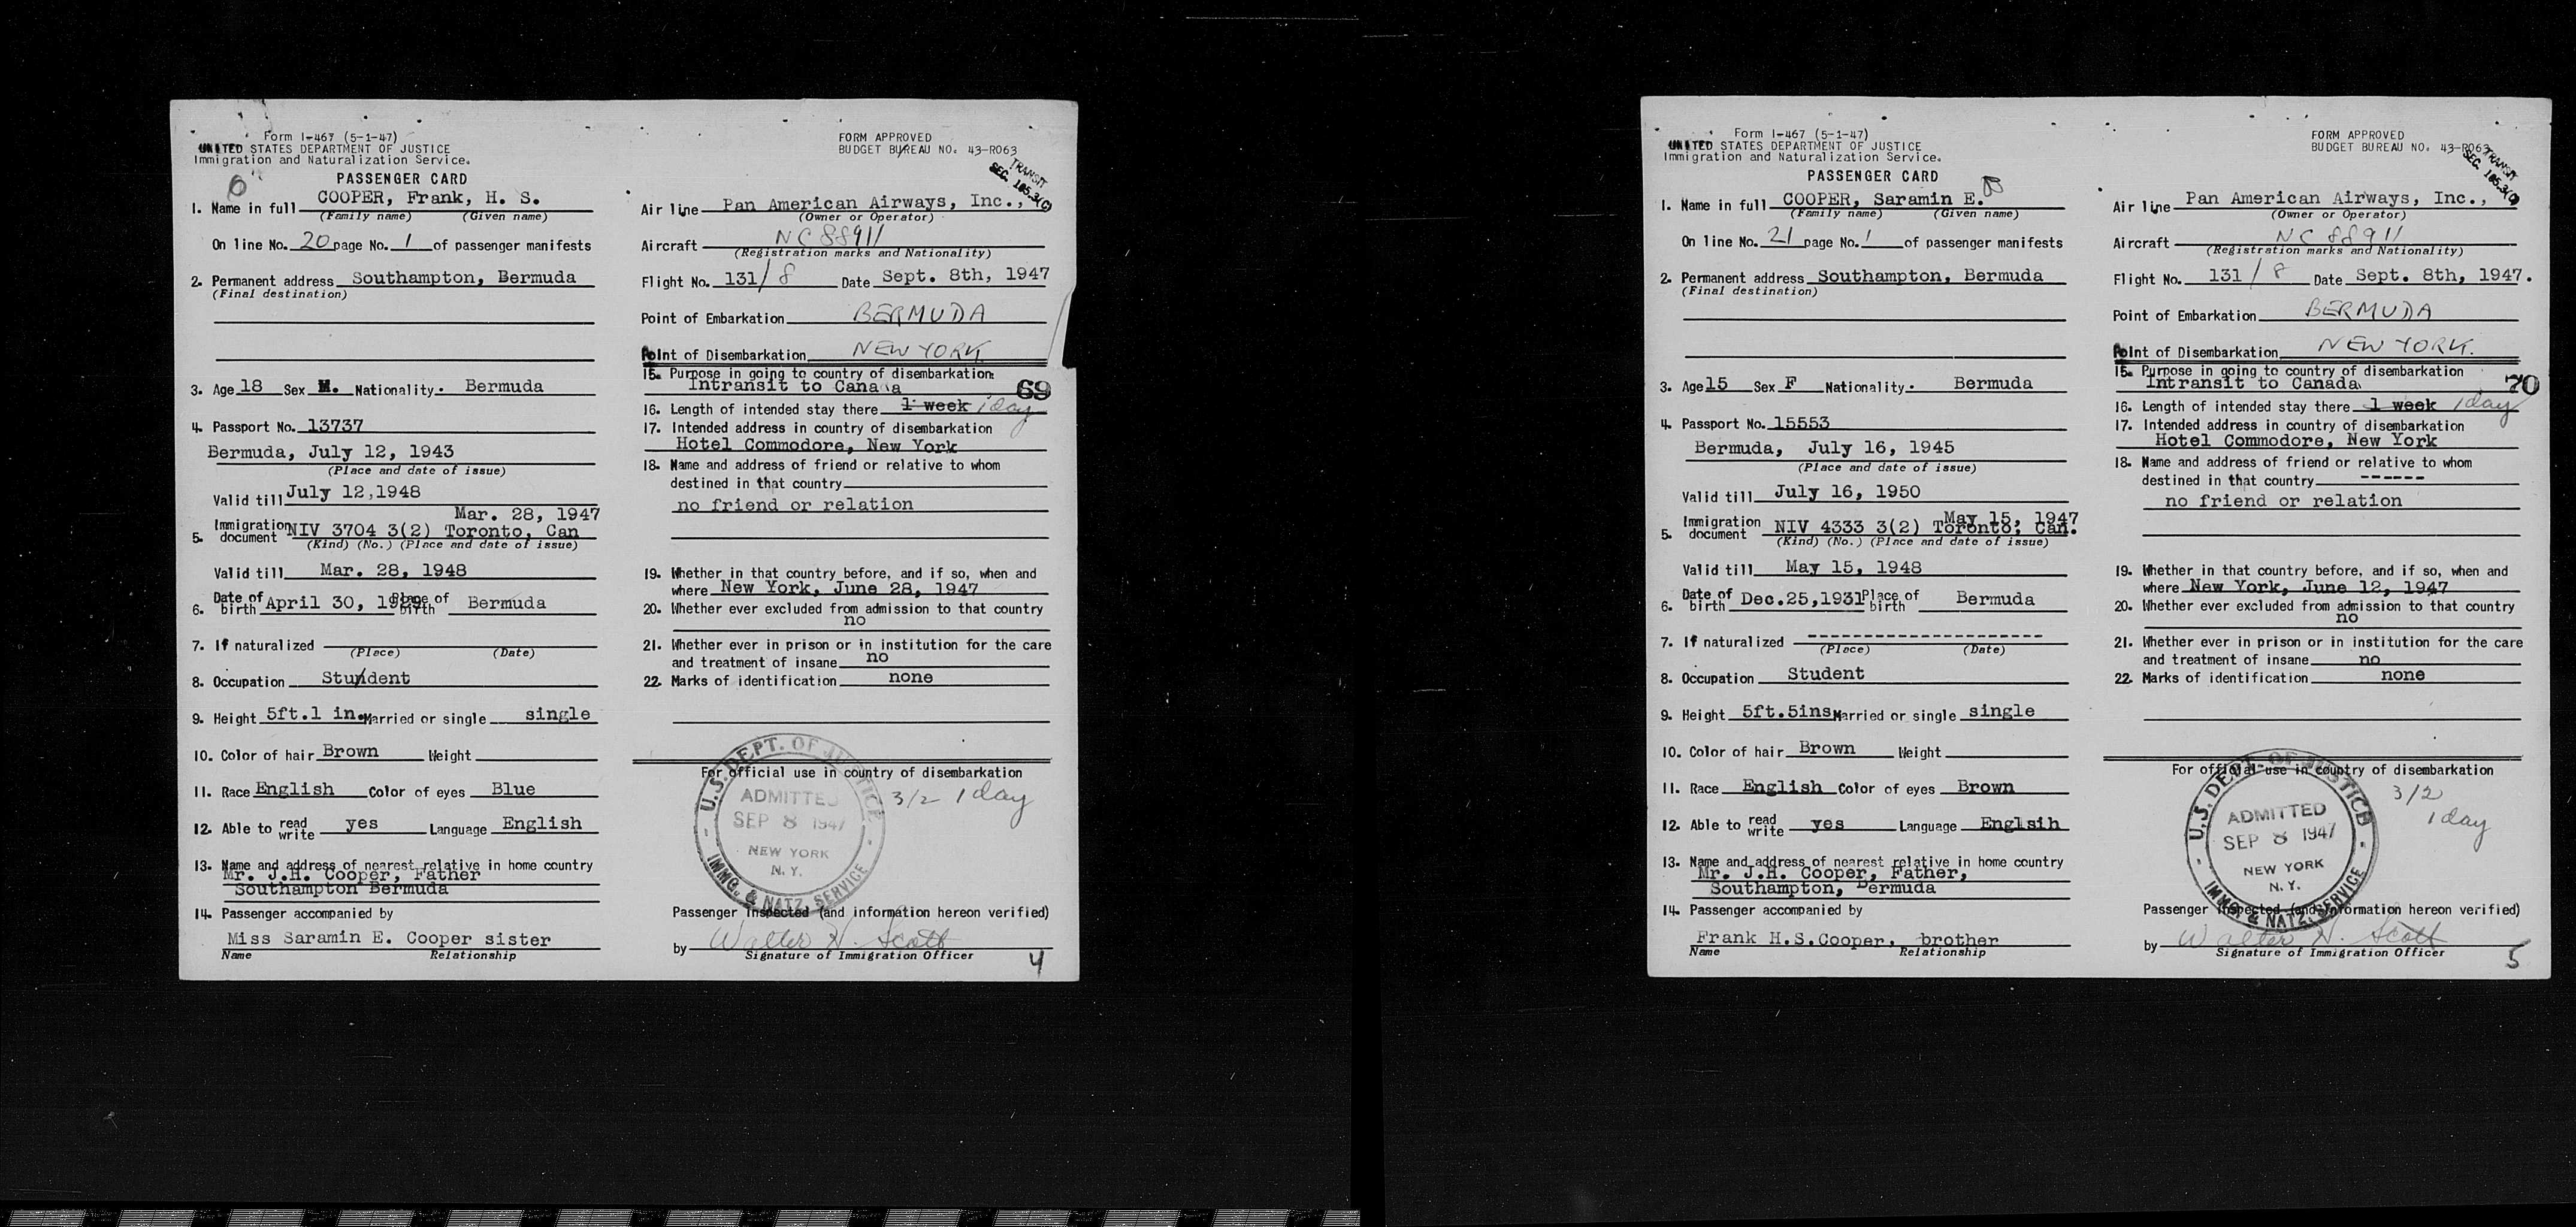 Form I-467 (5-1-47)
UNITED STATES DEPARTMENT OF JUSTICE
Immigration and Naturalization Service.
FORM APPROVED
BUDGET BUREAU NO. 43-R063
TRANSIT
SEC. 105.3(c)
PASSENGER CARD
1. Name in full COOPER, Frank, H. S.
(Family name) (Given name)
On line No. 20 page No. 1 of passenger manifests
2. Permanent address Southampton, Bermuda
(Final destination)
3. Age 18 Sex M. Nationality. Bermuda
4. Passport No. 13737
Bermuda, July 12, 1943
(Place and date of issue)
Valid till July 12,1948
Mar. 28, 1947
5. Immigration document NIV 3704 3(2) Toronto, Can
(Kind) (No.) (Place and date of issue)
Valid till Mar. 28, 1948
6. Date of birth April 30, 1929 Place of birth Bermuda
7. If naturalized
(Place) (Date)
8. Occupation Student
9. Height 5ft.1 in. Married or single single
10. Color of hair Brown Weight
11. Race English Color of eyes Blue
12. Able to read write yes Language English
13. Name and address of nearest relative in home country
Mr. J.H. Cooper, Father
Southampton Bermuda
14. Passenger accompanied by
Miss Saramin E. Cooper sister
Name Relationship
Air line Pan American Airways, Inc.,
(Owner or Operator)
Aircraft NC 88911
(Registration marks and Nationality)
Flight No. 131/8 Date Sept. 8th, 1947
Point of Embarkation BERMUDA
Point of Disembarkation NEW YORK.
15. Purpose in going to country of disembarkation:
Intransit to Cana a
69
16. Length of intended stay there 1 week 1 day
17. Intended address in country of disembarkation
Hotel Commodore, New York
18. Name and address of friend or relative to whom
destined in that country
no friend or relation
19. Whether in that country before, and if so, when and
where New York, June 28, 1947
20. Whether ever excluded from admission to that country
no
21. Whether ever in prison or in institution for the care
and treatment of insane no
22. Marks of identification none
For official use in country of disembarkation
U.S. DEPT. OF JUSTICE
ADMITTED
SEP 8 1947
NEW YORK
N.Y.
IMMG. & NATZ. SERVICE
3/2 1 day
Passenger Inspected (and information hereon verified)
by Walter H. Scott
Signature of Immigration Officer
4
Form I-467 (5-1-47)
UNITED STATES DEPARTMENT OF JUSTICE
Immigration and Naturalization Service.
FORM APPROVED
BUDGET BUREAU NO. 43-R063
TRANSIT
SEC. 105.3(c)
PASSENGER CARD
1. Name in full COOPER, Saramin E.
(Family name) (Given name)
On line No. 21 page No. 1 of passenger manifests
2. Permanent address Southampton, Bermuda
(Final destination)
3. Age 15 Sex F Nationality. Bermuda
4. Passport No. 15553
Bermuda, July 16, 1945
(Place and date of issue)
Valid till July 16, 1950
May 15, 1947
5. Immigration document NIV 4333 3(2) Toronto, Can.
(Kind) (No.) (Place and date of issue)
Valid till May 15, 1948
6. Date of birth Dec.25,1931 Place of birth Bermuda
7. If naturalized ----------------------
(Place) (Date)
8. Occupation Student
9. Height 5ft.5ins Married or single single
10. Color of hair Brown Weight
11. Race English Color of eyes Brown
12. Able to read write yes Language Englsih
13. Name and address of nearest relative in home country
Mr. J.H. Cooper, Father,
Southampton, Bermuda
14. Passenger accompanied by
Frank H.S.Cooper, brother
Name Relationship
Air line Pan American Airways, Inc.,
(Owner or Operator)
Aircraft NC 88911
(Registration marks and Nationality)
Flight No. 131/8 Date Sept. 8th, 1947.
Point of Embarkation BERMUDA
Point of Disembarkation NEW YORK.
15. Purpose in going to country of disembarkation
Intransit to Canada
70
16. Length of intended stay there 1 week 1 day
17. Intended address in country of disembarkation
Hotel Commodore, New York
18. Name and address of friend or relative to whom
destined in that country ------
no friend or relation
19. Whether in that country before, and if so, when and
where New York, June 12, 1947
20. Whether ever excluded from admission to that country
no
21. Whether ever in prison or in institution for the care
and treatment of insane no
22. Marks of identification none
For official use in country of disembarkation
U.S. DEPT. OF JUSTICE
ADMITTED
SEP 8 1947
NEW YORK
N.Y.
IMMG. & NATZ. SERVICE
3/2
1 day
Passenger Inspected (and information hereon verified)
by Walter H. Scott
Signature of Immigration Officer
5